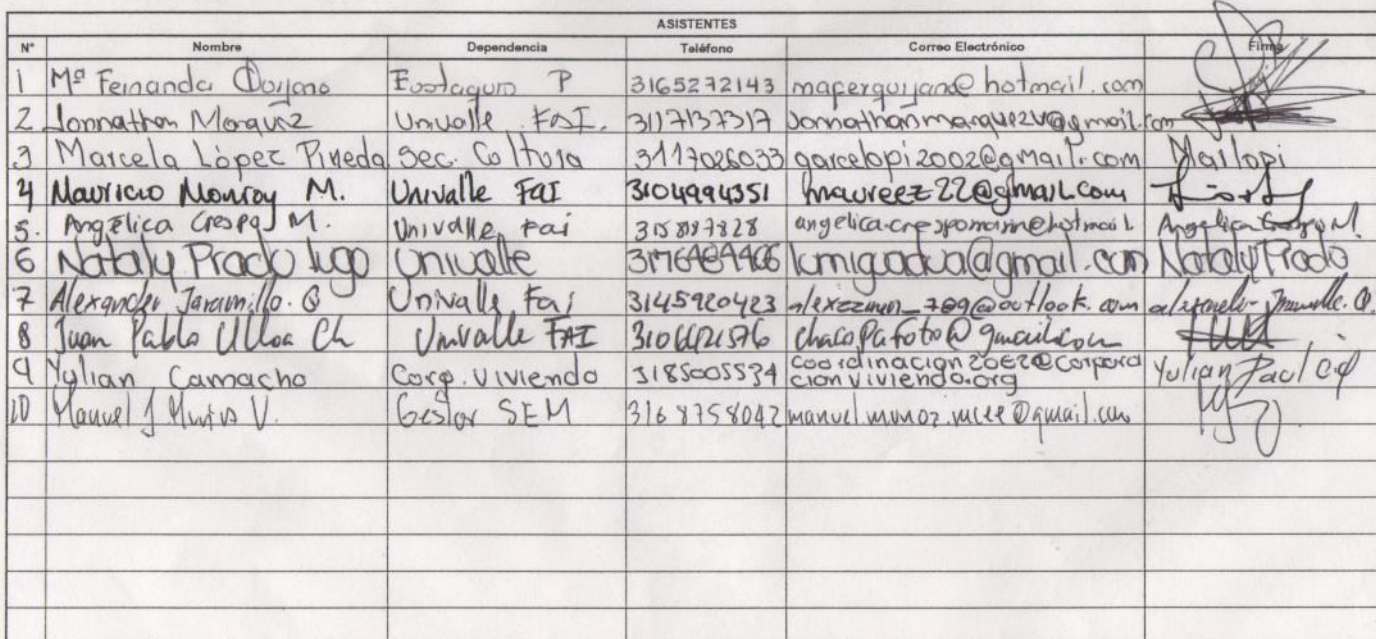 ASISTENTES
N° Nombre Dependencia Teléfono Correo Electrónico Firma
1 Mª Fernanda Quijano Eustaquio P 3165272143 maferquijano@hotmail.com
2 Jonnathan Marquez Univalle FAI. 3117137317 Jonnathanmarquezv@gmail.com
3 Marcela López Pineda Sec. Cultura 3117026033 garcelopi2002@gmail.com Marlopi
4 Mauricio Monroy M. Univalle FAI 3104994351 maureez22@gmail.com
5. Angélica Crespo M. Univalle Fai 315887828 angelica.crespomarin@hotmail Angelica Crespo M.
6 Nataly Prado Lugo Univalle lumiguadua@gmail.com Nataly Prado
7 Alexander Jaramillo. Q Univalle Fai 3145920423 alexander Jaramillo. Q.
8 Juan Pablo Ulloa Ch Univalle FAI 3106621576 chacopafoto@gmail.com
9 Yulian Camacho Corp. Viviendo 3185005534 coordinacion20E2@Corpora
cionviviendo.org Yulian Paul
10 Manuel J Muñoz V. Gestor SEM 3168758042 manuel.munoz.mcee@gmail.com